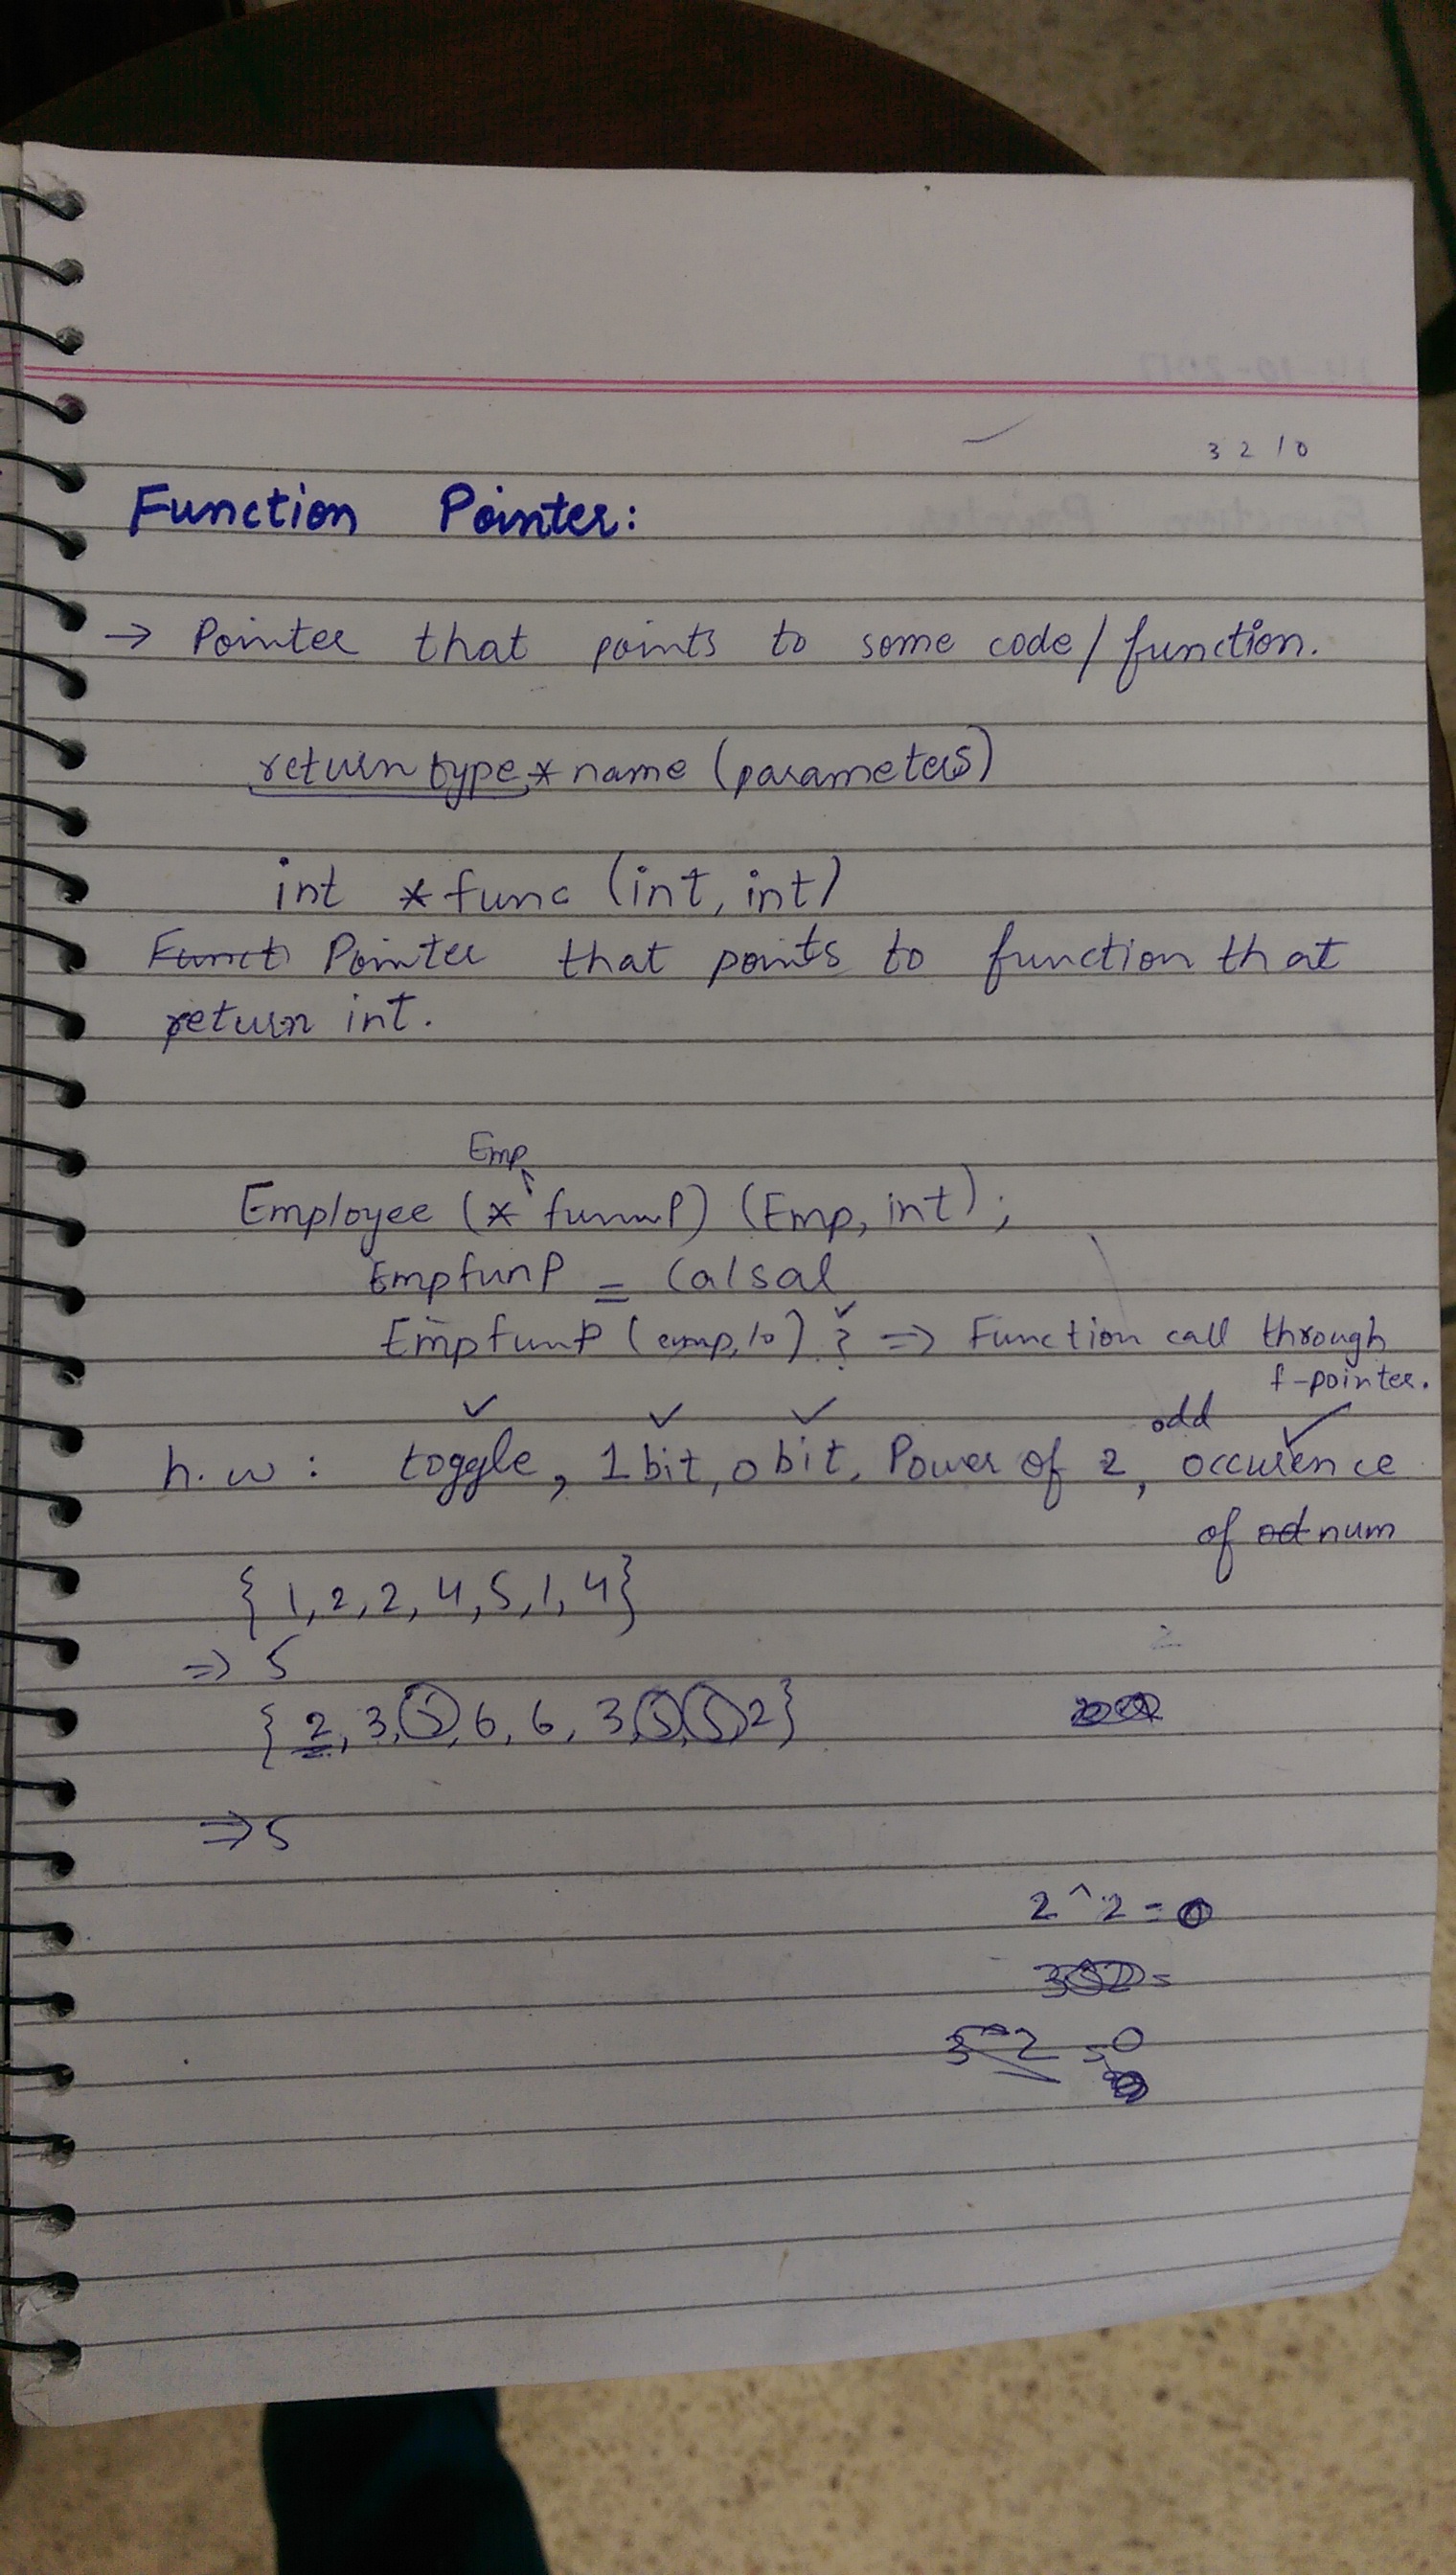 3 2 1 0
Function Pointer:
→ Pointer that points to some code/function.
return type * name (parameters)
int * func (int, int)
Funct Pointer that points to function that
return int.
Emp
Employee (* funnP) (Emp, int);
EmpfunP = Calsal
EmpfunP (emp, 10) ; => Function call through
f-pointer.
odd
h.w : toggle, 1 bit, 0 bit, Power of 2, occurence
of od num
{ 1, 2, 2, 4, 5, 1, 4}
=> 5
{ 2, 3, 5, 6, 6, 3, 5, 5, 2}
=> 5
2 ^ 2 = 0
3 ^ 2 = 0